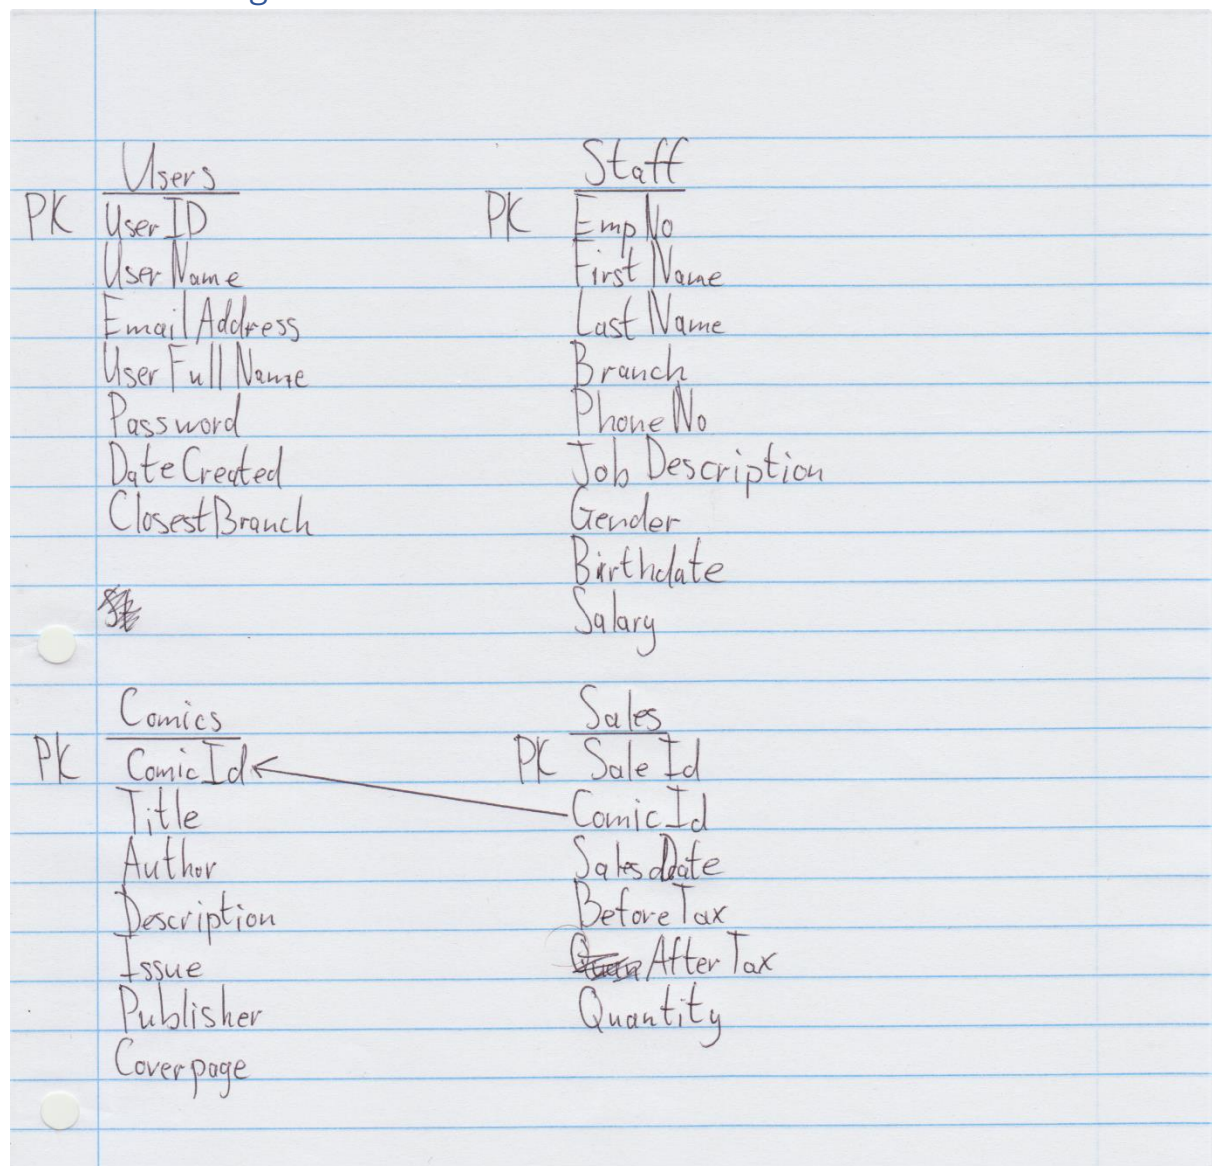 Users
PK UserID
UserName
EmailAddress
UserFullName
Password
DateCreated
ClosestBranch
Staff
PK EmpNo
FirstName
LastName
Branch
PhoneNo
Job Description
Gender
Birthdate
Salary
Comics
PK ComicId
Title
Author
Description
Issue
Publisher
Coverpage
Sales
PK SaleId
ComicId
SalesDate
BeforeTax
AfterTax
Quantity